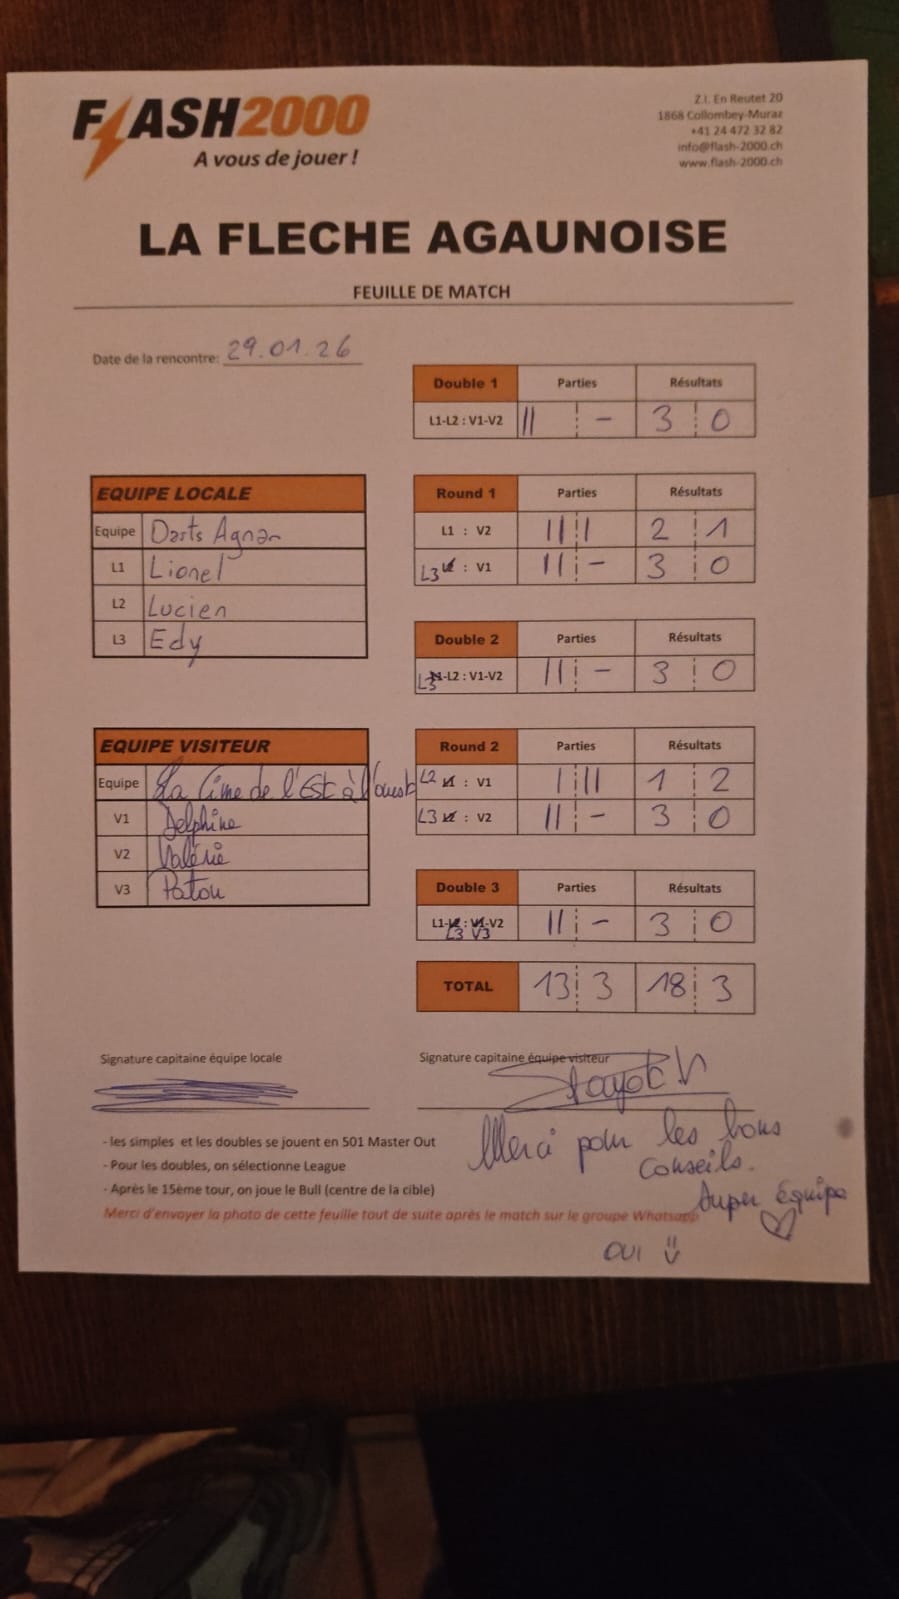 FLASH2000
A vous de jouer !
Z.I. En Reutet 20
1868 Collombey-Muraz
+41 24 472 32 82
info@flash-2000.ch
www.flash-2000.ch
LA FLECHE AGAUNOISE
FEUILLE DE MATCH
Date de la rencontre: 29.01.26
Double 1 Parties Résultats
L1-L2 : V1-V2 || - 3 0
EQUIPE LOCALE
Equipe Darts Agnan
L1 Lionel
L2 Lucien
L3 Edy
Round 1 Parties Résultats
L1 : V2 || | 2 1
L3 : V1 || - 3 0
Double 2 Parties Résultats
L3-L2 : V1-V2 || - 3 0
EQUIPE VISITEUR
Equipe La Cime de l'Est à l'ouest
V1 Delphine
V2 Valérie
V3 Patou
Round 2 Parties Résultats
L2 : V1 | || 1 2
L3 : V2 || - 3 0
Double 3 Parties Résultats
L1-L3 : V3-V2 || - 3 0
TOTAL 13 3 18 3
Signature capitaine équipe locale
Signature capitaine équipe visiteur
- les simples et les doubles se jouent en 501 Master Out
- Pour les doubles, on sélectionne League
- Après le 15ème tour, on joue le Bull (centre de la cible)
Merci d'envoyer la photo de cette feuille tout de suite après le match sur le groupe Whatsapp
Merci pour les bons
conseils.
Super équipe
OUI